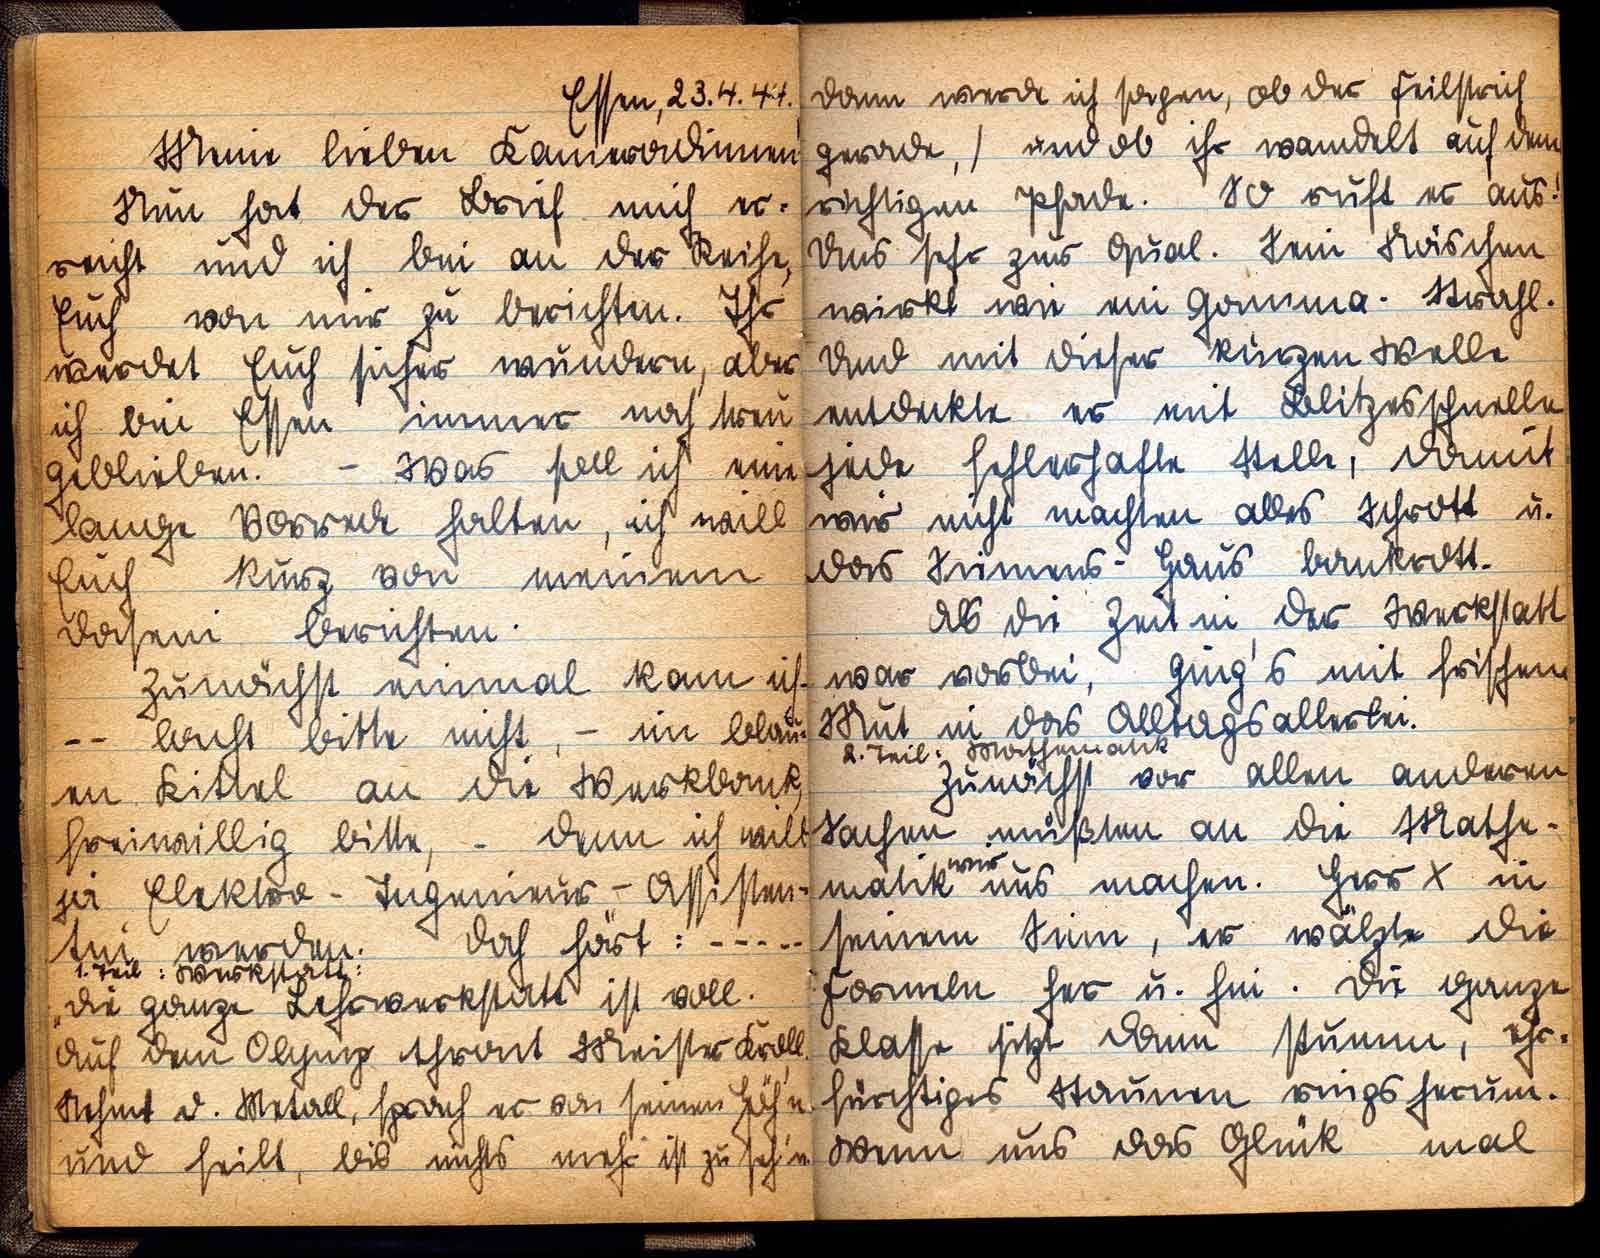 Essen, 23.4.44.
Meine lieben Kameradinnen!
Nun hat der Brief mich er-
reicht und ich bin an der Reihe,
Euch von mir zu berichten. Ihr
werdet Euch sicher wundern, aber
ich bin Essen immer noch treu
geblieben. - Was soll ich eine
lange Vorrede halten, ich will
Euch kurz von meinem
Dasein berichten.
Zunächst einmal kam ich-
-- lacht bitte nicht, - im blau-
en Kittel an die Werkbank,
freiwillig bitte, - denn ich will
ja Elektro-Ingenieur-Assisten-
tin werden. Doch hört: -----
1. Teil: Werkstatt:
"Die ganze Lehrwerkstatt ist voll.
Auf dem Olymp thront Meister Kroll.
Nehmt d. Metall, sprach er von seinen Höh'n
und feilt, bis nichts mehr ist zu seh'n
dann werde ich sagen, ob der Feilstrich
gerade, / und ob ihr wandelt auf dem
richtigen Pfade. So ruft er aus!
Uns sehr zur Qual. Sein Näschen
wirkt wie ein Gamma-Strahl.
Und mit dieser kurzen Welle
entdeckte er mit Blitzesschnelle
jede fehlerhafte Stelle, damit
wir nicht machten alles Schrott u.
das Siemens-Haus bankrott.
Als die Zeit in der Werkstatt
war vorbei, ging's mit frischem
Mut in das Alltagsallerlei.
2. Teil: Mathematik
Zunächst vor allen anderen
Sachen mußten an die Mathe-
matik wir uns machen. Herr X in
seinem Sinn, er wälzte die
Formeln her u. hin. Die ganze
Klasse sitzt dann stumm, ehr-
fürchtiges Staunen rings herum.
Wenn uns das Glück mal